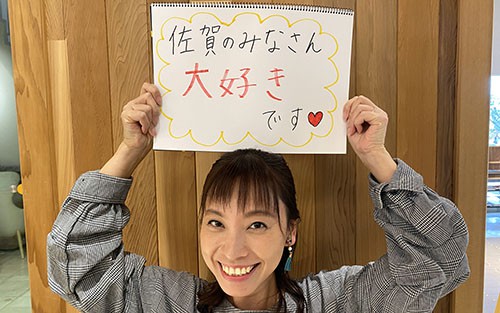 佐賀のみなさん
大好き
です♥